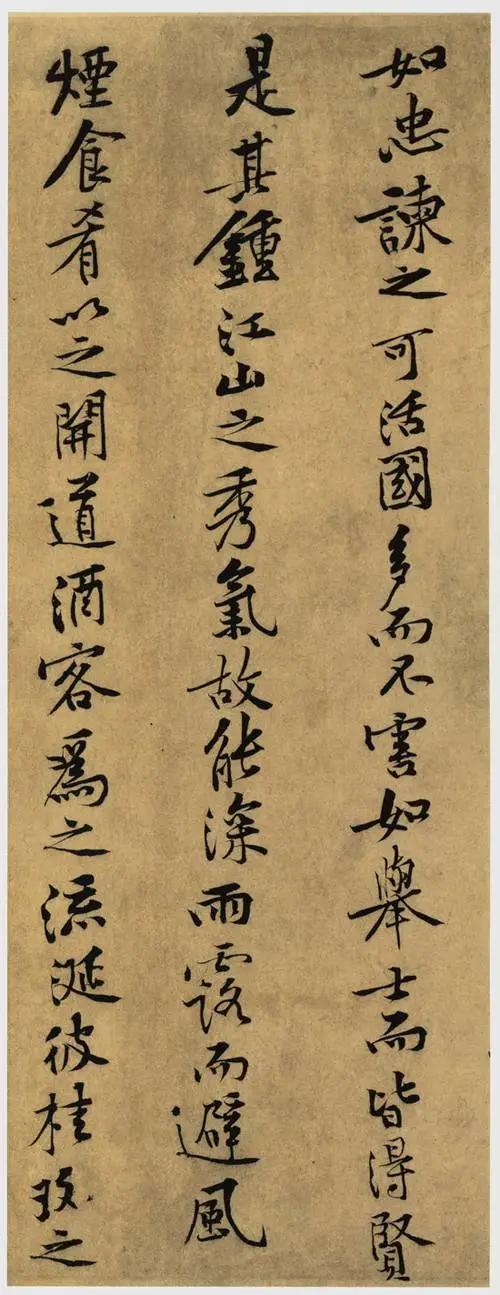 如忠諫之可活國多而不害如舉士而皆得賢
是其鍾江山之秀氣故能深雨露而避風
煙食肴以之開道酒客爲之流涎彼桂玫之